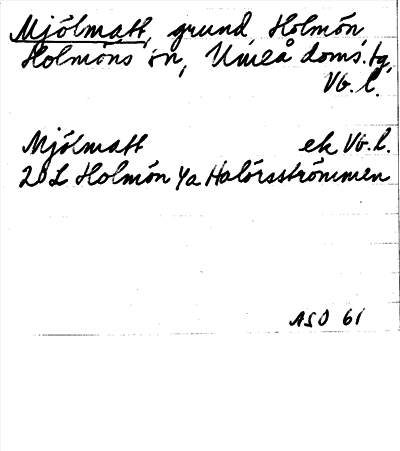 Mjölmatt, grund, Holmön
Holmöns sn, Umeå doms.tg,
Vb. l.
Mjölmatt ek Vb. l.
20L Holmön Ya Halörsströmmen
ASO 61